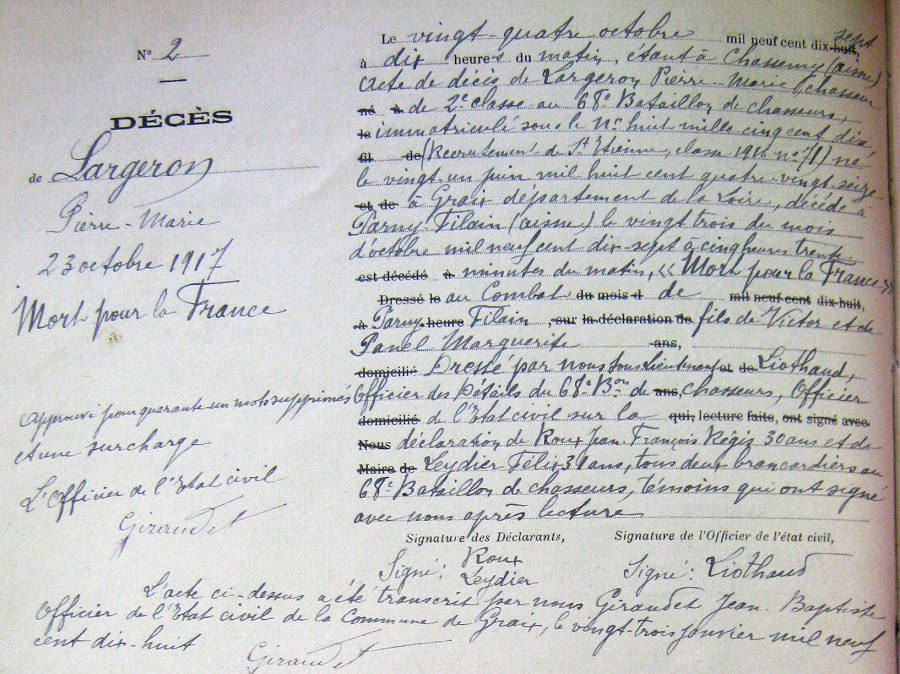 N° 2
DÉCÈS
de Largeron
Pierre-Marie
23 octobre 1917
Mort pour la France
Approuvé pour quarante un mots supprimés
et une surcharge
L'Officier de l'Etat civil
Giraudet
Le vingt-quatre octobre mil neuf cent dix-huit, sept
à dix heures du matin, étant à Chassemy (aisne)
acte de décès de Largeron Pierre-Marie, chasseur
né à de 2e classe au 68e Bataillon de chasseurs,
le immatriculé sous le N° huit mille cinq cent dix,
fil de (Recrutement de St Etienne, classe 1916 n° 711) né
le vingt-un juin mil huit cent quatre-vingt-seize
et de à Graix département de la Loire, décédé à
Pargny-Filain (aisne) le vingt trois du mois
d'octobre mil neuf cent dix-sept à cinq heures trente
est décédé à minutes du matin, « Mort pour la France »
Dressé le au Combat du mois d de mil neuf cent dix-huit,
à Pargny heure Filain, sur la déclaration de fils de Victor et de
Panel Marguerite ans,
domicilié Dressé par nous sous lieutenant et de Liothaud,
Officier des Détails du 68e Bon de ans, chasseurs, Officier
domicilié de l'Etat civil sur la qui, lecture faite, ont signé avec
Nous déclaration de Roux Jean François Régis 30 ans et de
Maire de Leydier Félix 31 ans, tous deux brancardiers au
68e Bataillon de chasseurs, témoins qui ont signé
avec nous après lecture
Signature des Déclarants, Signature de l'Officier de l'état civil,
Signé: Roux
Leydier
Signé: Liothaud
L'acte ci-dessus a été transcrit par nous Giraudet Jean-Baptiste
Officier de l'Etat civil de la Commune de Graix, le vingt-trois janvier mil neuf
cent dix-huit
Giraudet